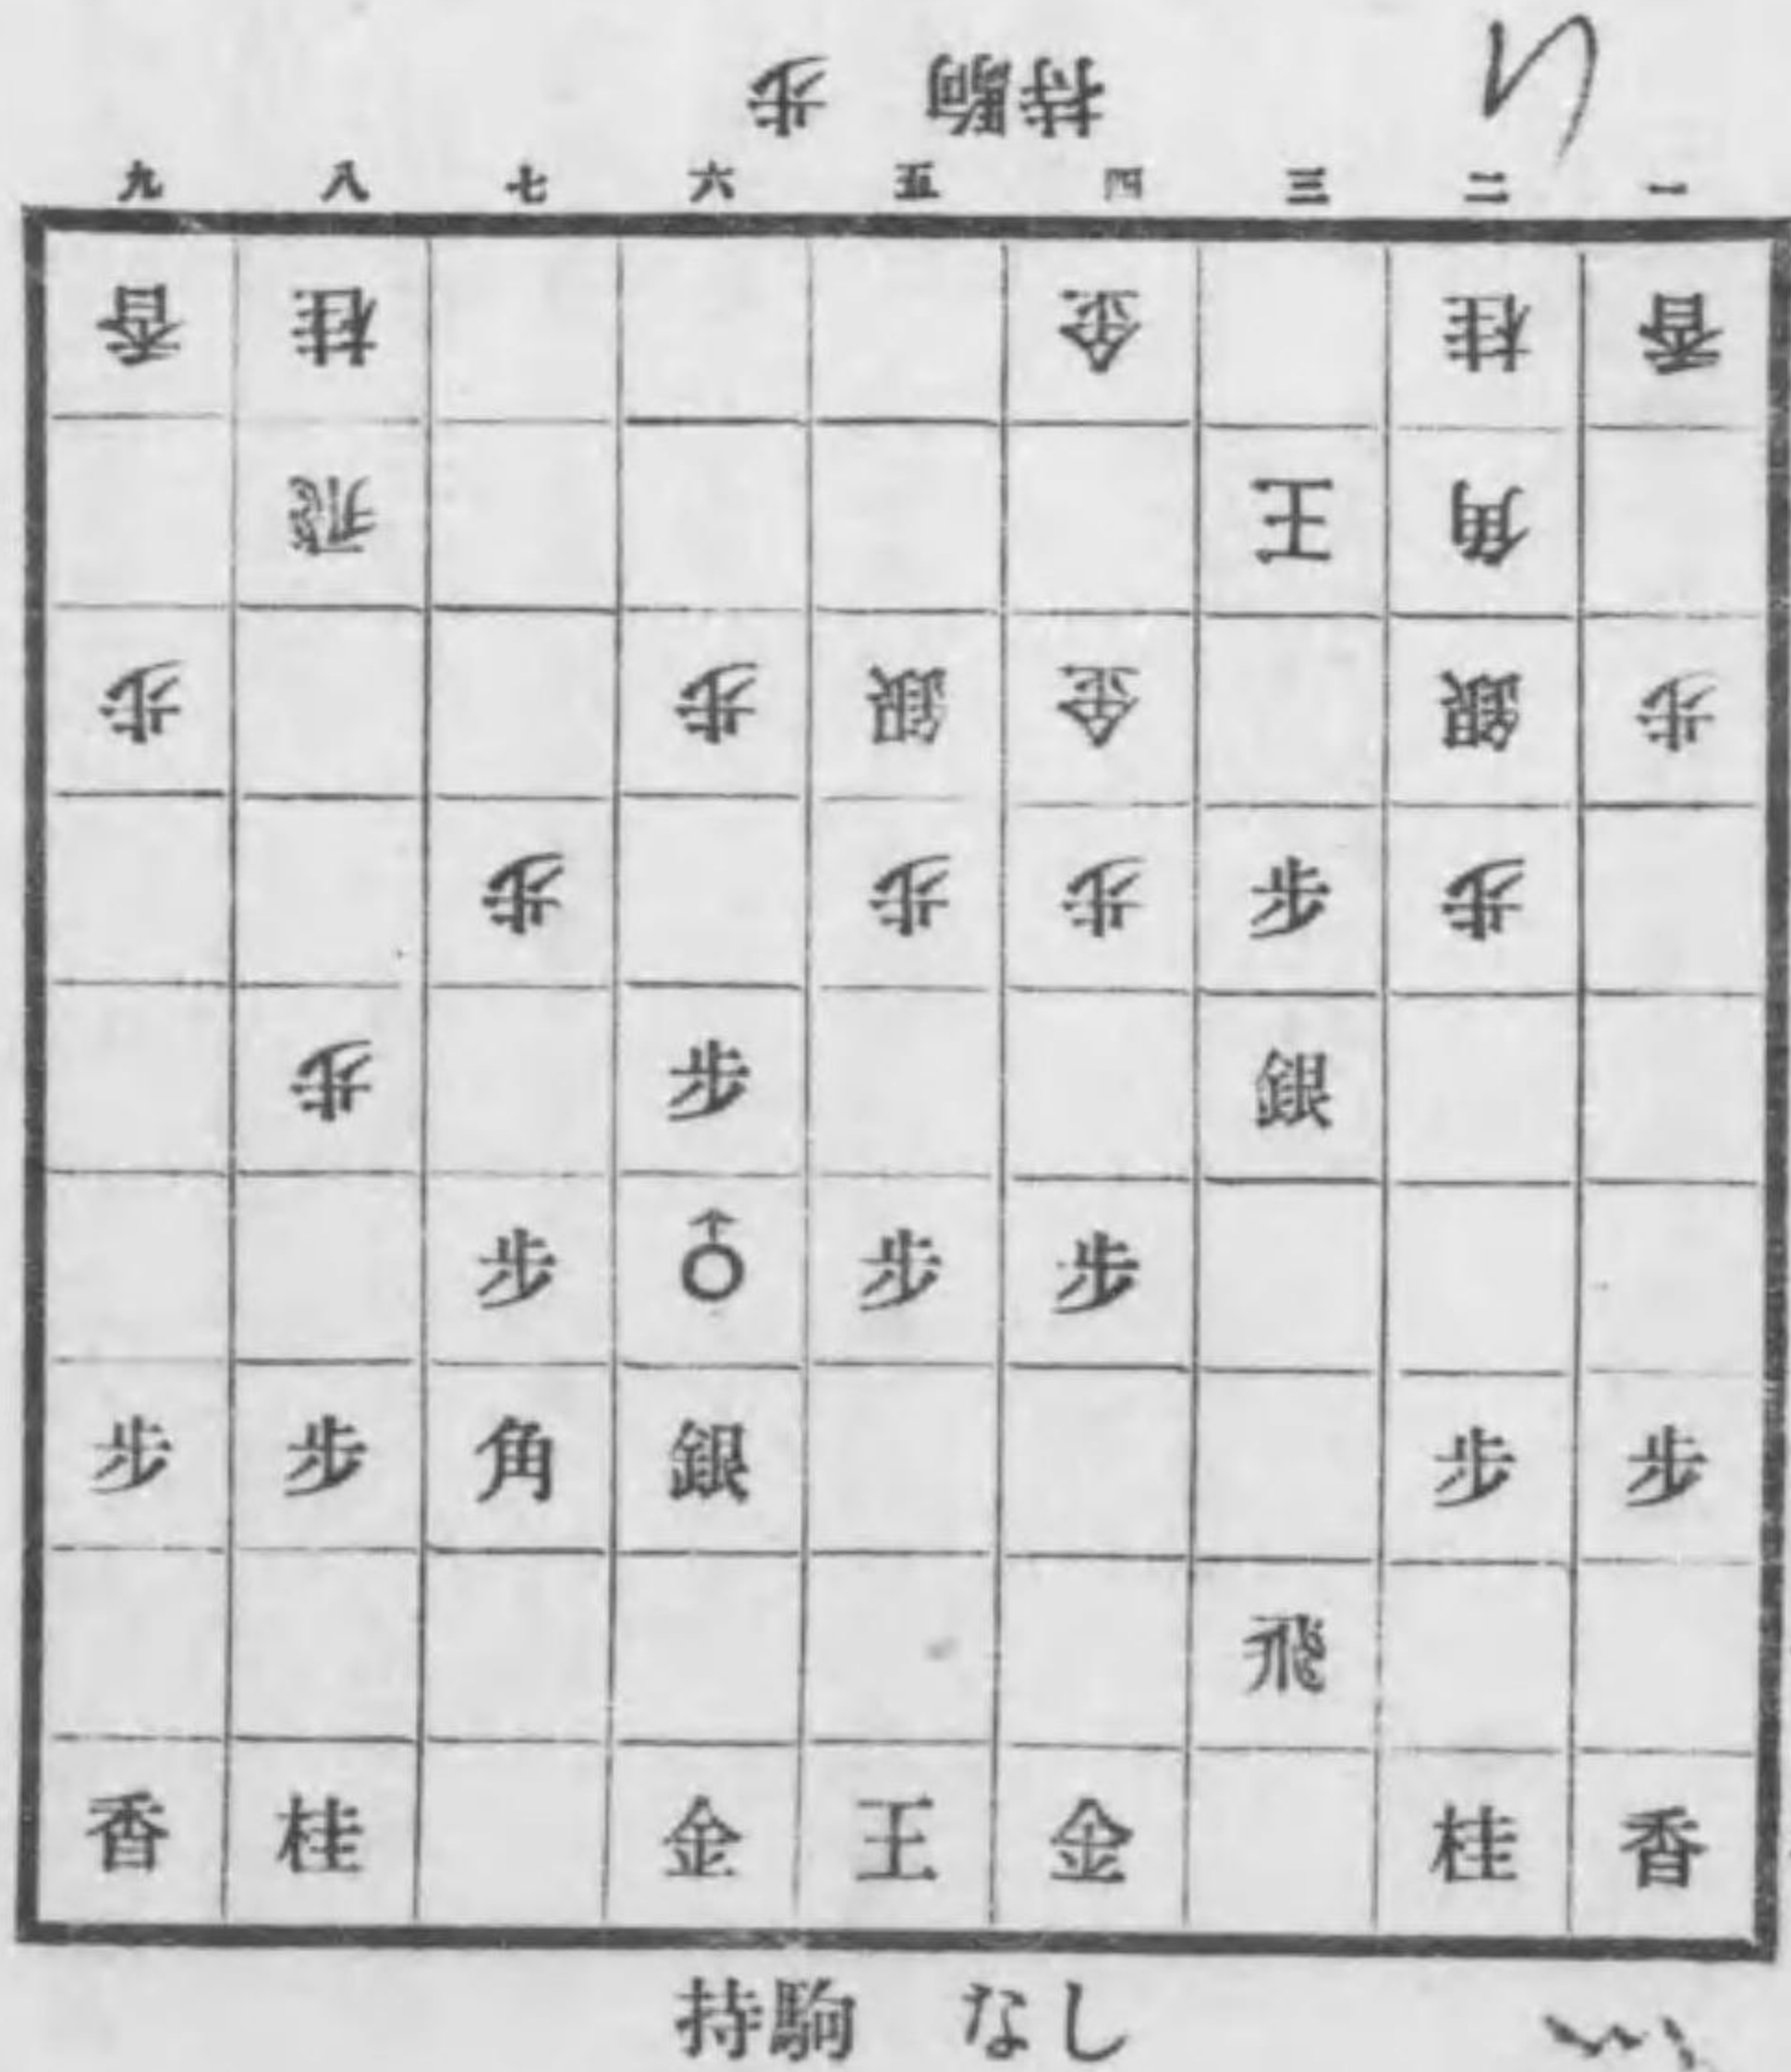 持駒 歩
九 八 七 六 五 四 三 二 一
香 桂 金 桂 香
飛 王 角
歩 歩 銀 金 銀 歩
歩 歩 歩 歩 歩
歩 歩 銀
歩 歩 歩
歩 歩 角 銀 歩 歩
飛
香 桂 金 王 金 桂 香
持駒 なし